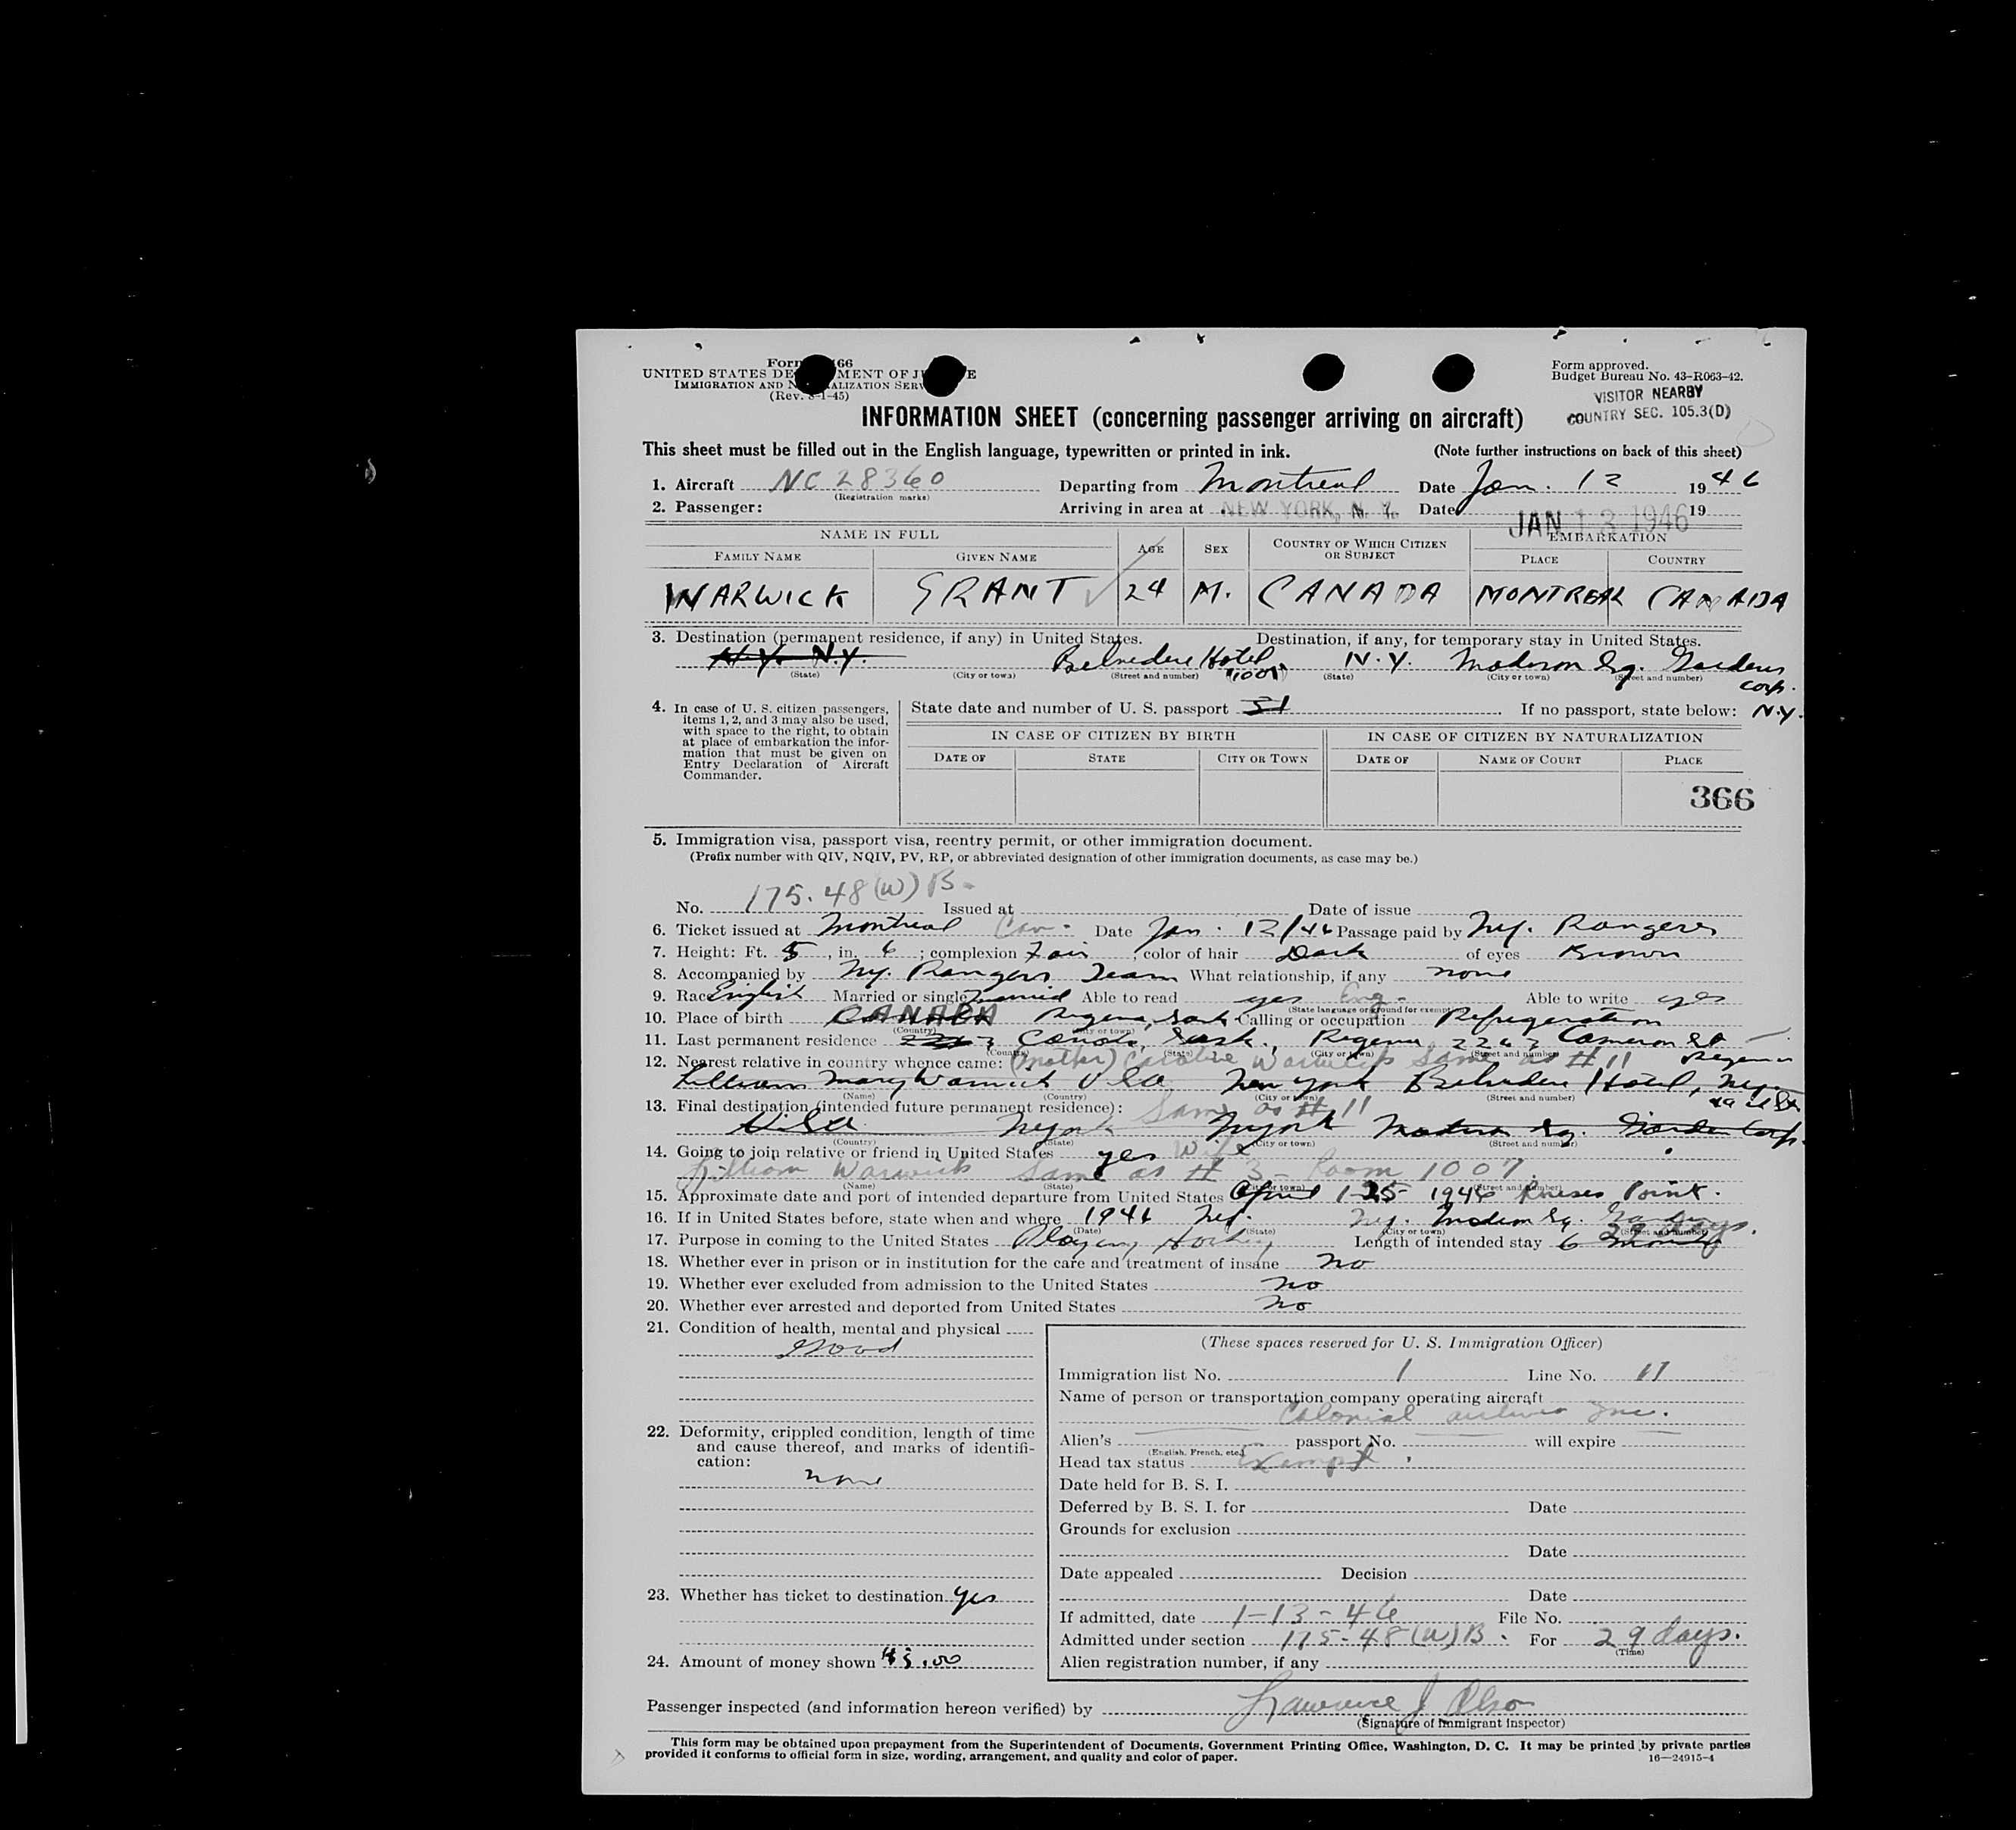 Form 66
UNITED STATES DE MENT OF J E
IMMIGRATION AND N ALIZATION SERV
(Rev. 8-1-45)
Form approved.
Budget Bureau No. 43-R063-42.
VISITOR NEARBY
COUNTRY SEC. 105.3(D)
INFORMATION SHEET (concerning passenger arriving on aircraft)
This sheet must be filled out in the English language, typewritten or printed in ink. (Note further instructions on back of this sheet)
1. Aircraft NC 28360 Departing from Montreal Date Jan. 12 1946
(Registration marks)
2. Passenger: Arriving in area at NEW YORK, N. Y. Date JAN 13 1946 19
NAME IN FULL AGE SEX COUNTRY OF WHICH CITIZEN OR SUBJECT EMBARKATION
FAMILY NAME GIVEN NAME PLACE COUNTRY
WARWICK GRANT 24 M. CANADA MONTREAL CANADA
3. Destination (permanent residence, if any) in United States. Destination, if any, for temporary stay in United States.
N.Y. N.Y. Belvedere Hotel N.Y. Madison Sq. Gardens Corp. N.Y.
(State) (City or town) (Street and number) "1007" (State) (City or town) (Street and number)
4. In case of U. S. citizen passengers, items 1, 2, and 3 may also be used, with space to the right, to obtain at place of embarkation the information that must be given on Entry Declaration of Aircraft Commander.
State date and number of U. S. passport If no passport, state below:
IN CASE OF CITIZEN BY BIRTH IN CASE OF CITIZEN BY NATURALIZATION
DATE OF STATE CITY OR TOWN DATE OF NAME OF COURT PLACE
366
5. Immigration visa, passport visa, reentry permit, or other immigration document.
(Prefix number with QIV, NQIV, PV, RP, or abbreviated designation of other immigration documents, as case may be.)
No. 175.48(W)B. Issued at Date of issue
6. Ticket issued at Montreal Can. Date Jan. 12/46 Passage paid by N.Y. Rangers
7. Height: Ft. 5, in. 6; complexion Fair; color of hair Dark of eyes Brown
8. Accompanied by N.Y. Rangers Team What relationship, if any none
9. Race English Married or single married Able to read yes Eng. Able to write yes
(State language or ground for exemption)
10. Place of birth CANADA Regina, Sask Calling or occupation Refrigeration
(Country) (City or town)
11. Last permanent residence Canada, Sask. Regina 2263 Cameron St Regina
(Country) (State) (City or town) (Street and number)
12. Nearest relative in country whence came: (mother) Caroline Warwick Same as # 11
Lillian Mary Warwick USA New York Belvedere Hotel, N.Y.
(Name) (Country) (City or town) (Street and number)
13. Final destination (intended future permanent residence): Same as # 11
USA N York N York Madison Sq. Garden Corp.
(Country) (State) (City or town) (Street and number)
14. Going to join relative or friend in United States yes Wife
Lillian Warwick Same as # 3 - Room 1007.
(Name) (State) (City or town) (Street and number)
15. Approximate date and port of intended departure from United States April 1 25 1946 Rouses Point.
16. If in United States before, state when and where 1946 N.Y. N.Y. Madison Sq. Gardens
(Date) (State) (City or town) (Street and number)
17. Purpose in coming to the United States Playing Hockey Length of intended stay 6 Months 29 days.
18. Whether ever in prison or in institution for the care and treatment of insane No
19. Whether ever excluded from admission to the United States No
20. Whether ever arrested and deported from United States No
21. Condition of health, mental and physical
Good
22. Deformity, crippled condition, length of time and cause thereof, and marks of identification:
none
23. Whether has ticket to destination yes
24. Amount of money shown
(These spaces reserved for U. S. Immigration Officer)
Immigration list No. 1 Line No. 11
Name of person or transportation company operating aircraft
Colonial Airlines Inc.
Alien's passport No. will expire
(English, French, etc.)
Head tax status Exempt.
Date held for B. S. I.
Deferred by B. S. I. for Date
Grounds for exclusion
Date
Date appealed Decision
Date
If admitted, date 1-13-46 File No.
Admitted under section 175-48(W)B. For 29 days.
(Time)
Alien registration number, if any
Passenger inspected (and information hereon verified) by Lawrence J Olson
(Signature of Immigrant Inspector)
This form may be obtained upon prepayment from the Superintendent of Documents, Government Printing Office, Washington, D. C. It may be printed by private parties
provided it conforms to official form in size, wording, arrangement, and quality and color of paper. 16—24915-4